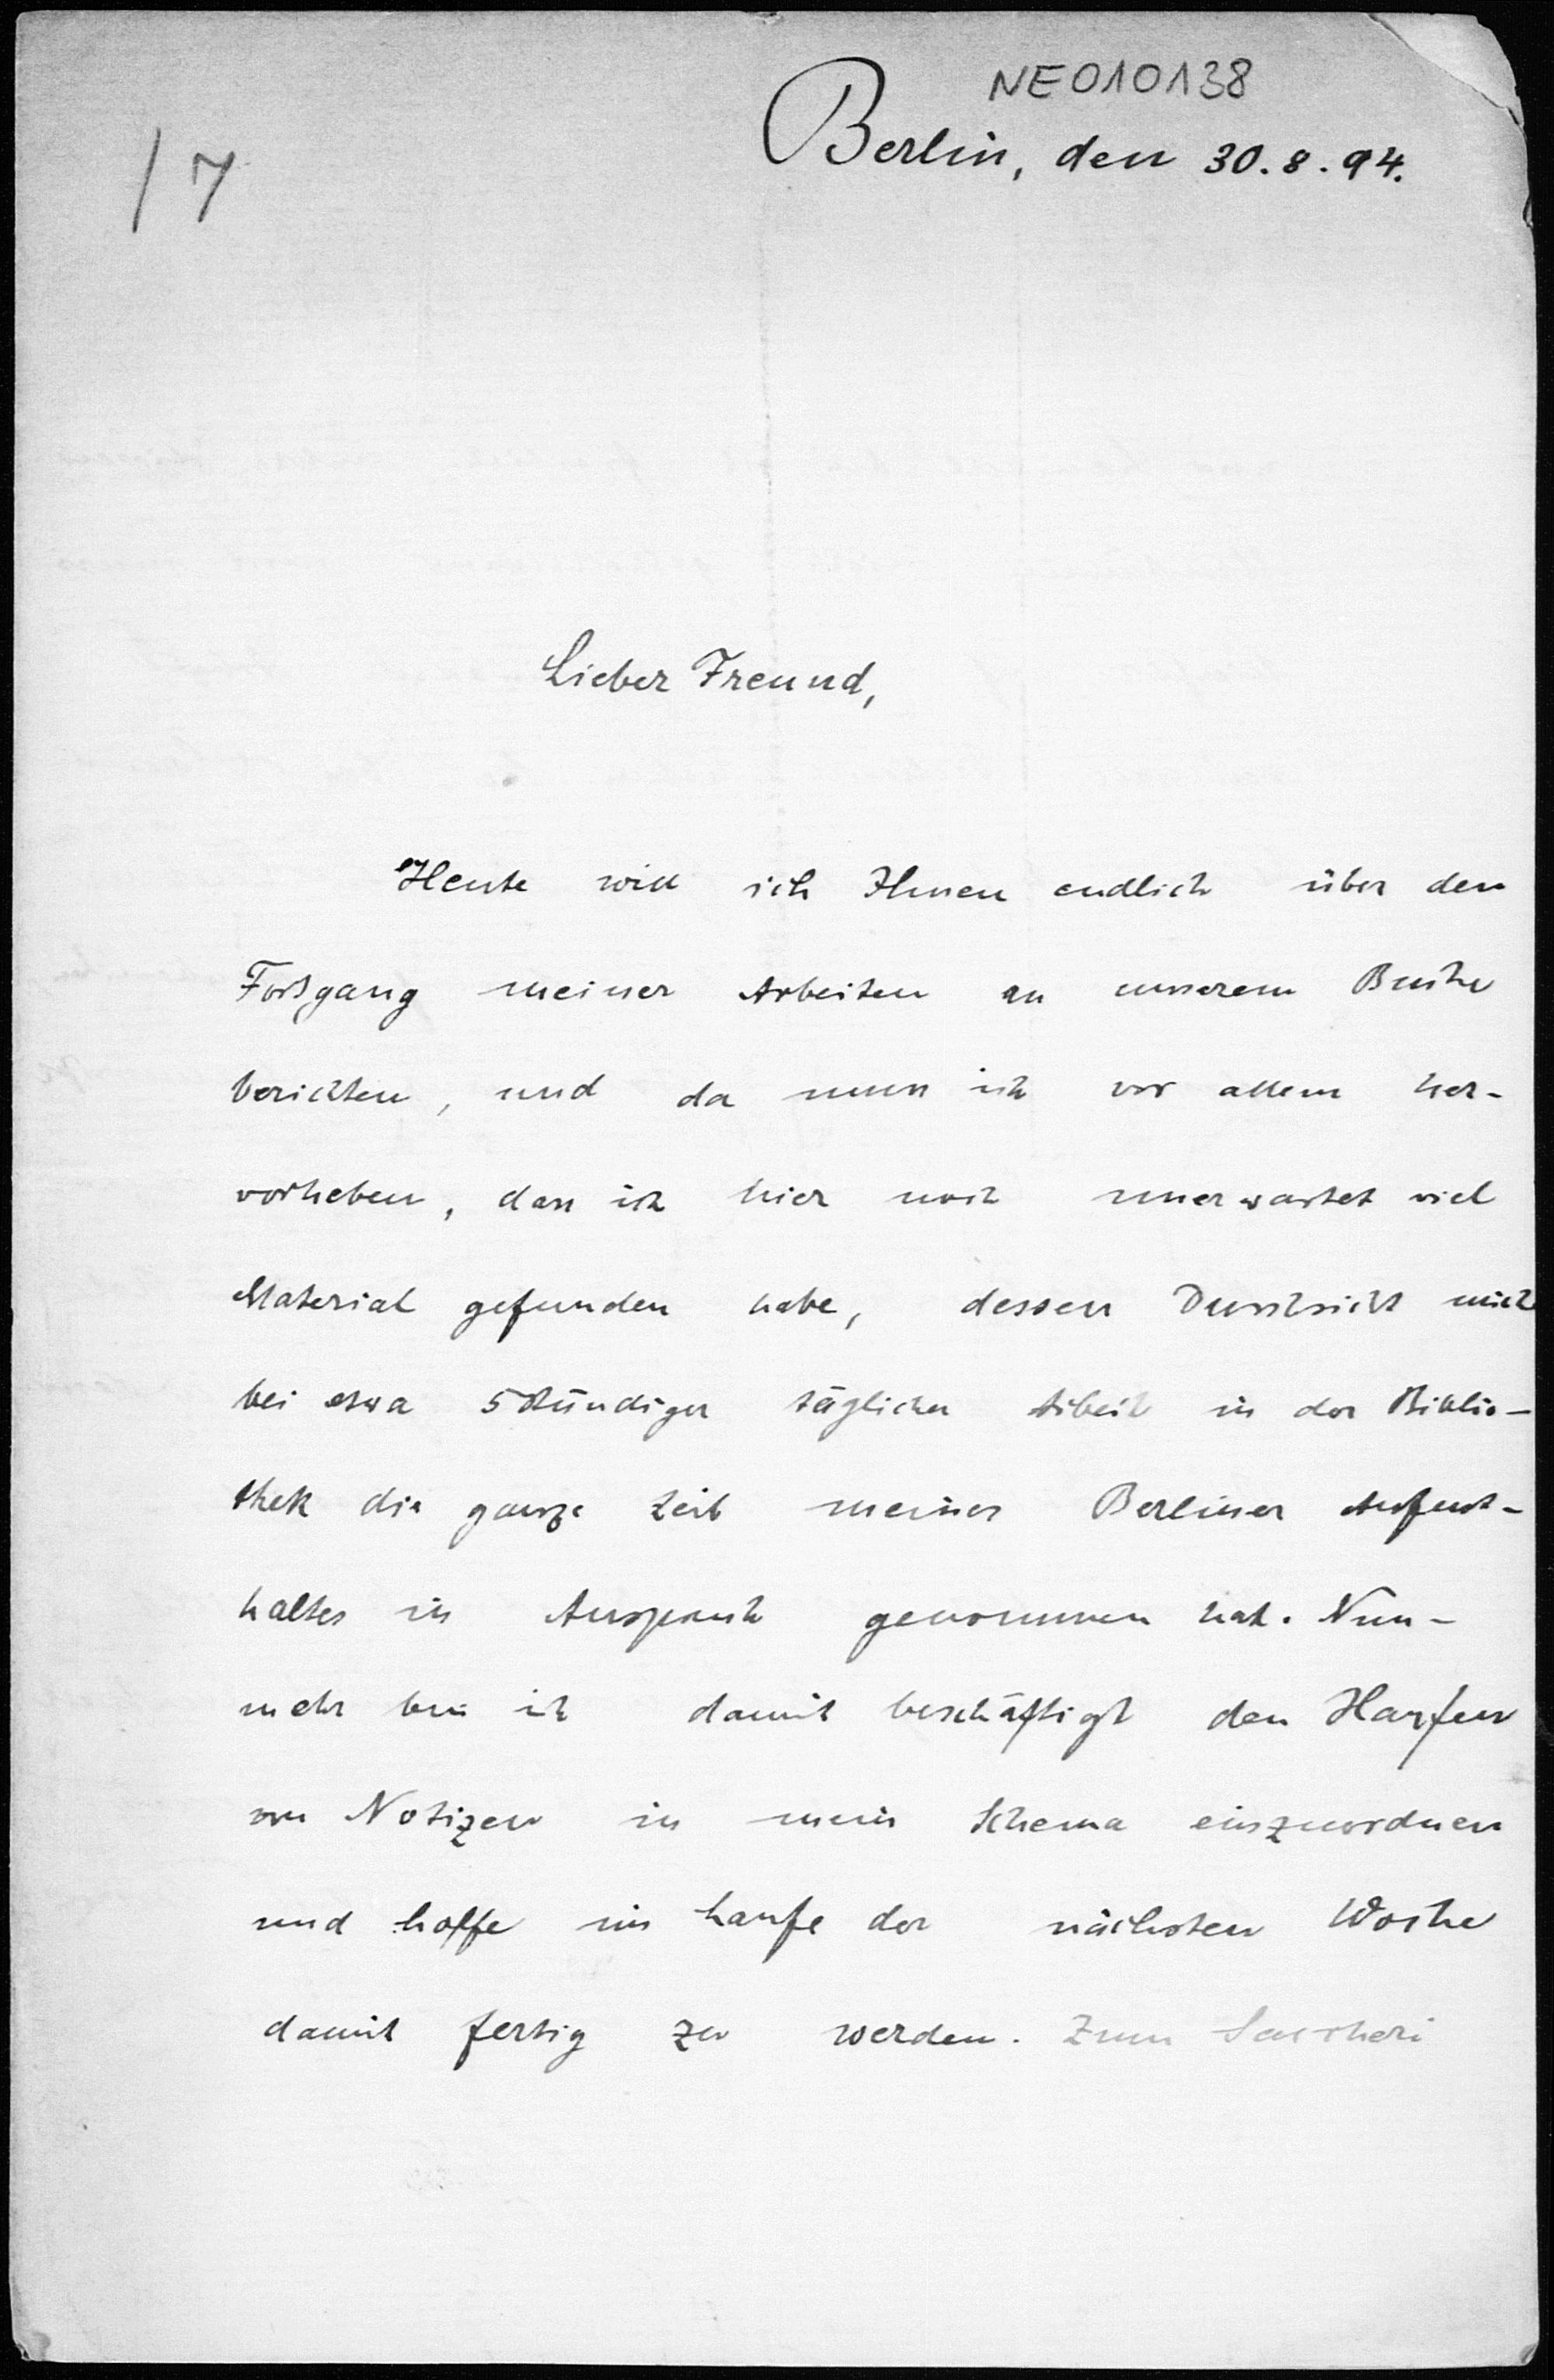 NE010138
Berlin, den 30.8.94.
17
Lieber Freund,
Heute will ich Ihnen endlich über den
Fortgang meiner Arbeiten an unserem Buche
berichten, und da muss ich vor allem her-
vorheben, dass ich hier noch unerwartet viel
Material gefunden habe, dessen Durchsicht mich
bei etwa 5stündiger täglicher Arbeit in der Biblio-
thek die ganze Zeit meines Berliner Aufent-
haltes in Anspruch genommen hat. Nun-
mehr bin ich damit beschäftigt den Haufen
von Notizen in mein Schema einzuordnen
und hoffe im Laufe der nächsten Woche
damit fertig zu werden. Zum Saccheri